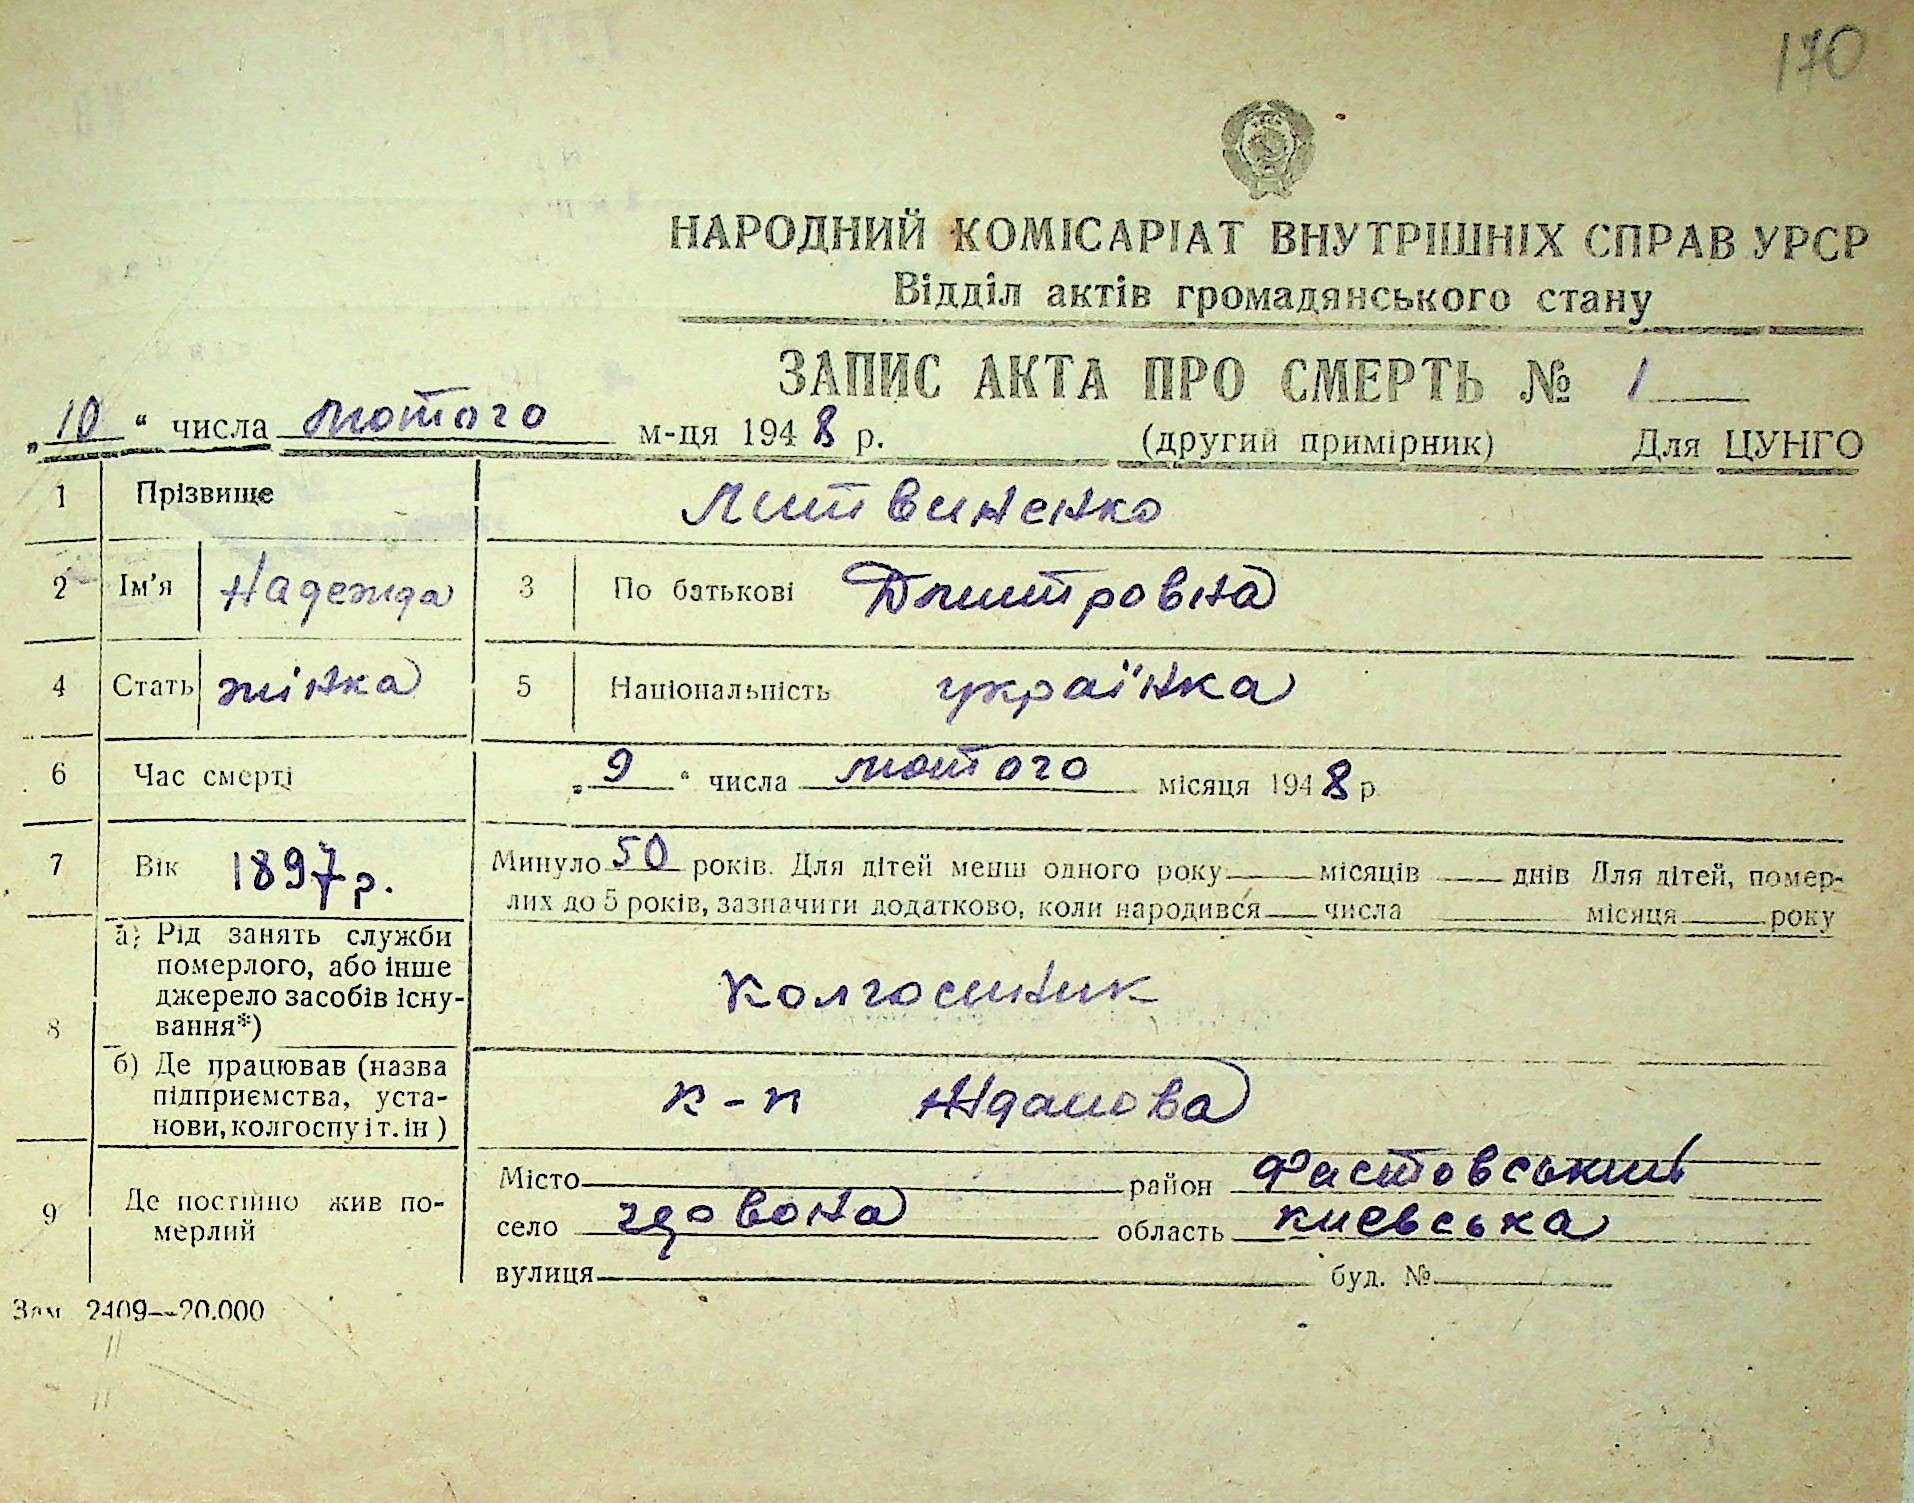 170
НАРОДНИЙ КОМІСАРІАТ ВНУТРІШНІХ СПРАВ УРСР
Відділ актів громадянського стану
ЗАПИС АКТА ПРО СМЕРТЬ № 1
„10“ числа лютого м-ця 1948 р. (другий примірник) Для ЦУНГО
1 Прізвище Литвиненко
2 Ім'я Надежда 3 По батькові Дмитровна
4 Стать жінка 5 Національність українка
6 Час смерті „9“ числа лютого місяця 1948 р
7 Вік 1897 р. Минуло 50 років. Для дітей менш одного року місяців днів Для дітей, помер-
лих до 5 років, зазначити додатково, коли народився числа місяця року
8 а) Рід занять служби
померлого, або інше
джерело засобів існу-
вання*)
Колгоспник
б) Де працював (назва
підприємства, уста-
нови, колгоспу і т. ін)
к-п Жданова
9 Де постійно жив по-
мерлий
Місто район Фастовський
село область киевська
вулиця буд. №
Зам 2409—20.000